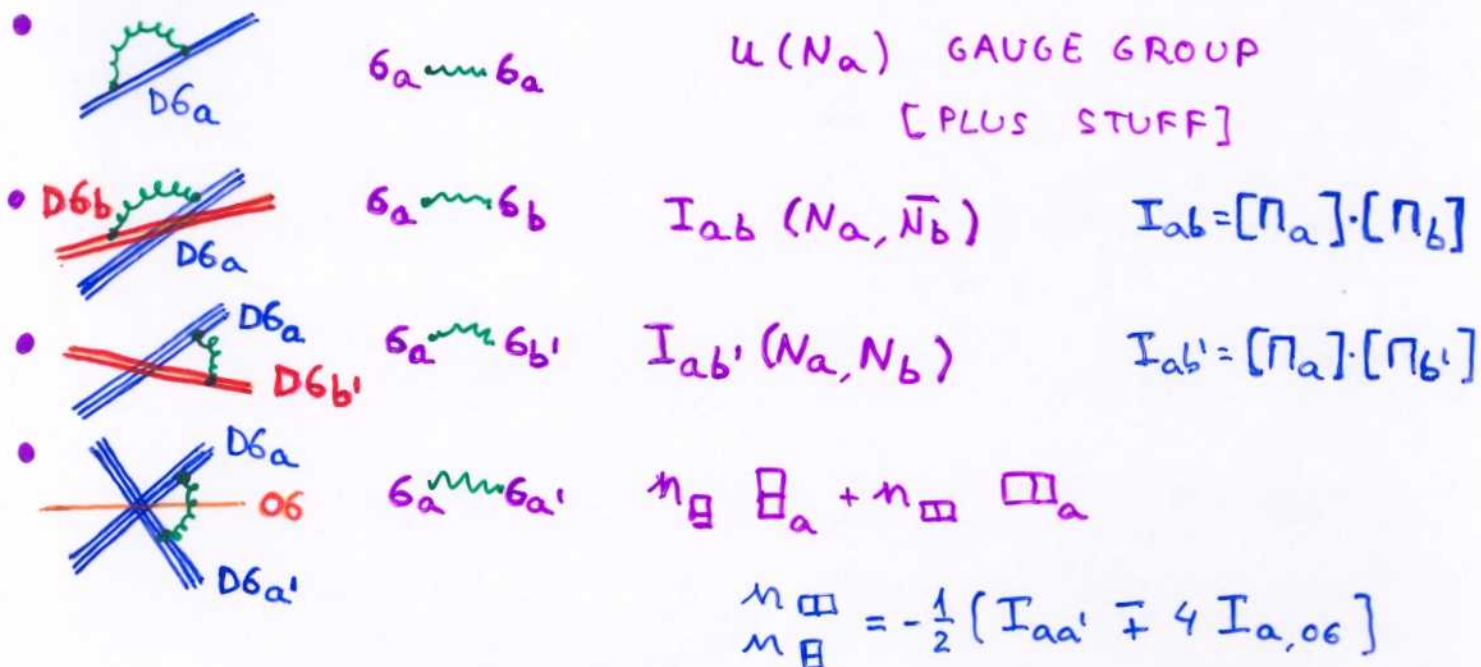 D6a 6a 6a U(Na) GAUGE GROUP
[PLUS STUFF]
D6b D6a 6a 6b Iab (Na, N̄b) Iab=[Πa]·[Πb]
D6a D6b' 6a 6b' Iab' (Na, Nb) Iab'=[Πa]·[Πb']
D6a O6 D6a' 6a 6a' n◫ ⊟a + n◫ ◫a
n◫
n⊟ = -1/2 (Iaa' ∓ 4 Ia,O6]